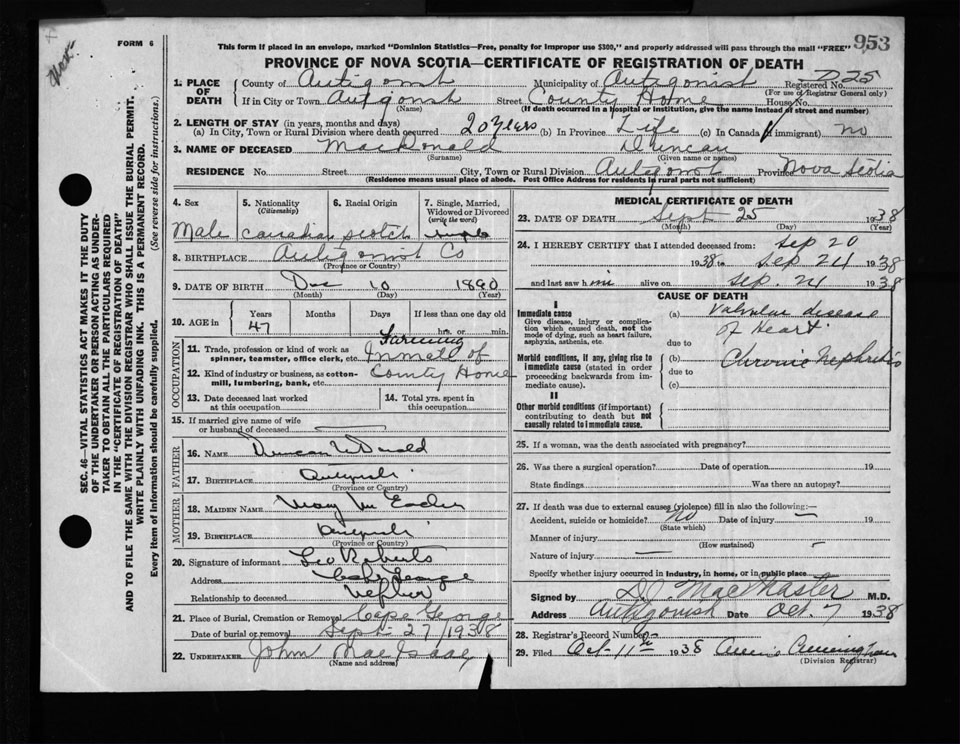 FORM 6
This form if placed in an envelope, marked "Dominion Statistics—Free, penalty for improper use $300," and properly addressed will pass through the mail "FREE"
953
PROVINCE OF NOVA SCOTIA—CERTIFICATE OF REGISTRATION OF DEATH
1. PLACE OF DEATH County of Municipality of Antigonish Registered No. D 25
(For use of Registrar General only)
If in City or Town Street County Home House No.
(If death occurred in a hospital or institution, give the name instead of street and number)
2. LENGTH OF STAY (in years, months and days)
(a) In City, Town or Rural Division where death occurred 20 Years (b) In Province Life (c) In Canada (if immigrant) no
3. NAME OF DECEASED MacDonald Duncan
(Surname) (Given name or names)
RESIDENCE No. Street City, Town or Rural Division Province Nova Scotia
(Residence means usual place of abode. Post Office Address for residents in rural parts not sufficient)
4. Sex 5. Nationality (Citizenship) 6. Racial Origin 7. Single, Married, Widowed or Divorced (write the word)
Male Canadian Scotch single
8. BIRTHPLACE Co
(Province or Country)
9. DATE OF BIRTH 10 1890
(Month) (Day) (Year)
10. AGE in Years Months Days If less than one day old
47 hrs. or min.
OCCUPATION
Farming
11. Trade, profession or kind of work as spinner, teamster, office clerk, etc. Inmate of
12. Kind of industry or business, as cotton-mill, lumbering, bank, etc. County Home
13. Date deceased last worked at this occupation 14. Total yrs. spent in this occupation
15. If married give name of wife or husband of deceased —
FATHER
16. NAME Duncan
17. BIRTHPLACE
(Province or Country)
MOTHER
18. MAIDEN NAME Mary
19. BIRTHPLACE
(Province or Country)
20. Signature of informant Leo Roberts
Address Cape George
Relationship to deceased Nephew
21. Place of Burial, Cremation or Removal Cape George
Date of burial or removal Sept. 27/1938
22. UNDERTAKER John MacIsaac
(Name and address)
MEDICAL CERTIFICATE OF DEATH
23. DATE OF DEATH Sept 25 1938
(Month) (Day) (Year)
24. I HEREBY CERTIFY that I attended deceased from: Sep 20
1938 to Sep 24 1938
and last saw him alive on Sep. 24 1938
CAUSE OF DEATH
I
Immediate cause
Give disease, injury or complication which caused death, not the mode of dying, such as heart failure, asphyxia, asthenia, etc.
(a) Valvular disease of Heart
due to
Morbid conditions, if any, giving rise to immediate cause (stated in order proceeding backwards from immediate cause).
(b) Chronic Nephritis
due to
(c)
II
Other morbid conditions (if important) contributing to death but not causally related to immediate cause.
25. If a woman, was the death associated with pregnancy?
26. Was there a surgical operation? Date of operation 19
State findings Was there an autopsy?
27. If death was due to external causes (violence) fill in also the following:—
Accident, suicide or homicide? No Date of injury — 19
(State which)
Manner of injury
(How sustained)
Nature of injury —
Specify whether injury occurred in industry, in home, or in public place
Signed by MacMaster M.D.
Address Antigonish Date Oct 7 1938
28. Registrar's Record Number
29. Filed Oct 11th 1938
(Division Registrar)
SEC. 46—VITAL STATISTICS ACT MAKES IT THE DUTY
OF THE UNDERTAKER OR PERSON ACTING AS UNDER-
TAKER TO OBTAIN ALL THE PARTICULARS REQUIRED
IN THE "CERTIFICATE OF REGISTRATION OF DEATH"
AND TO FILE THE SAME WITH THE DIVISION REGISTRAR WHO SHALL ISSUE THE BURIAL PERMIT.
WRITE PLAINLY WITH UNFADING INK. THIS IS A PERMANENT RECORD.
Every item of information should be carefully supplied. (See reverse side for instructions.)